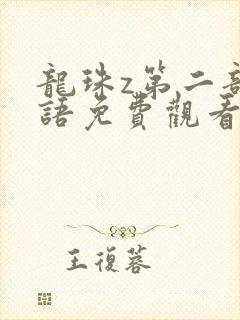 龍珠z第二部
語免費觀看
王復蓉